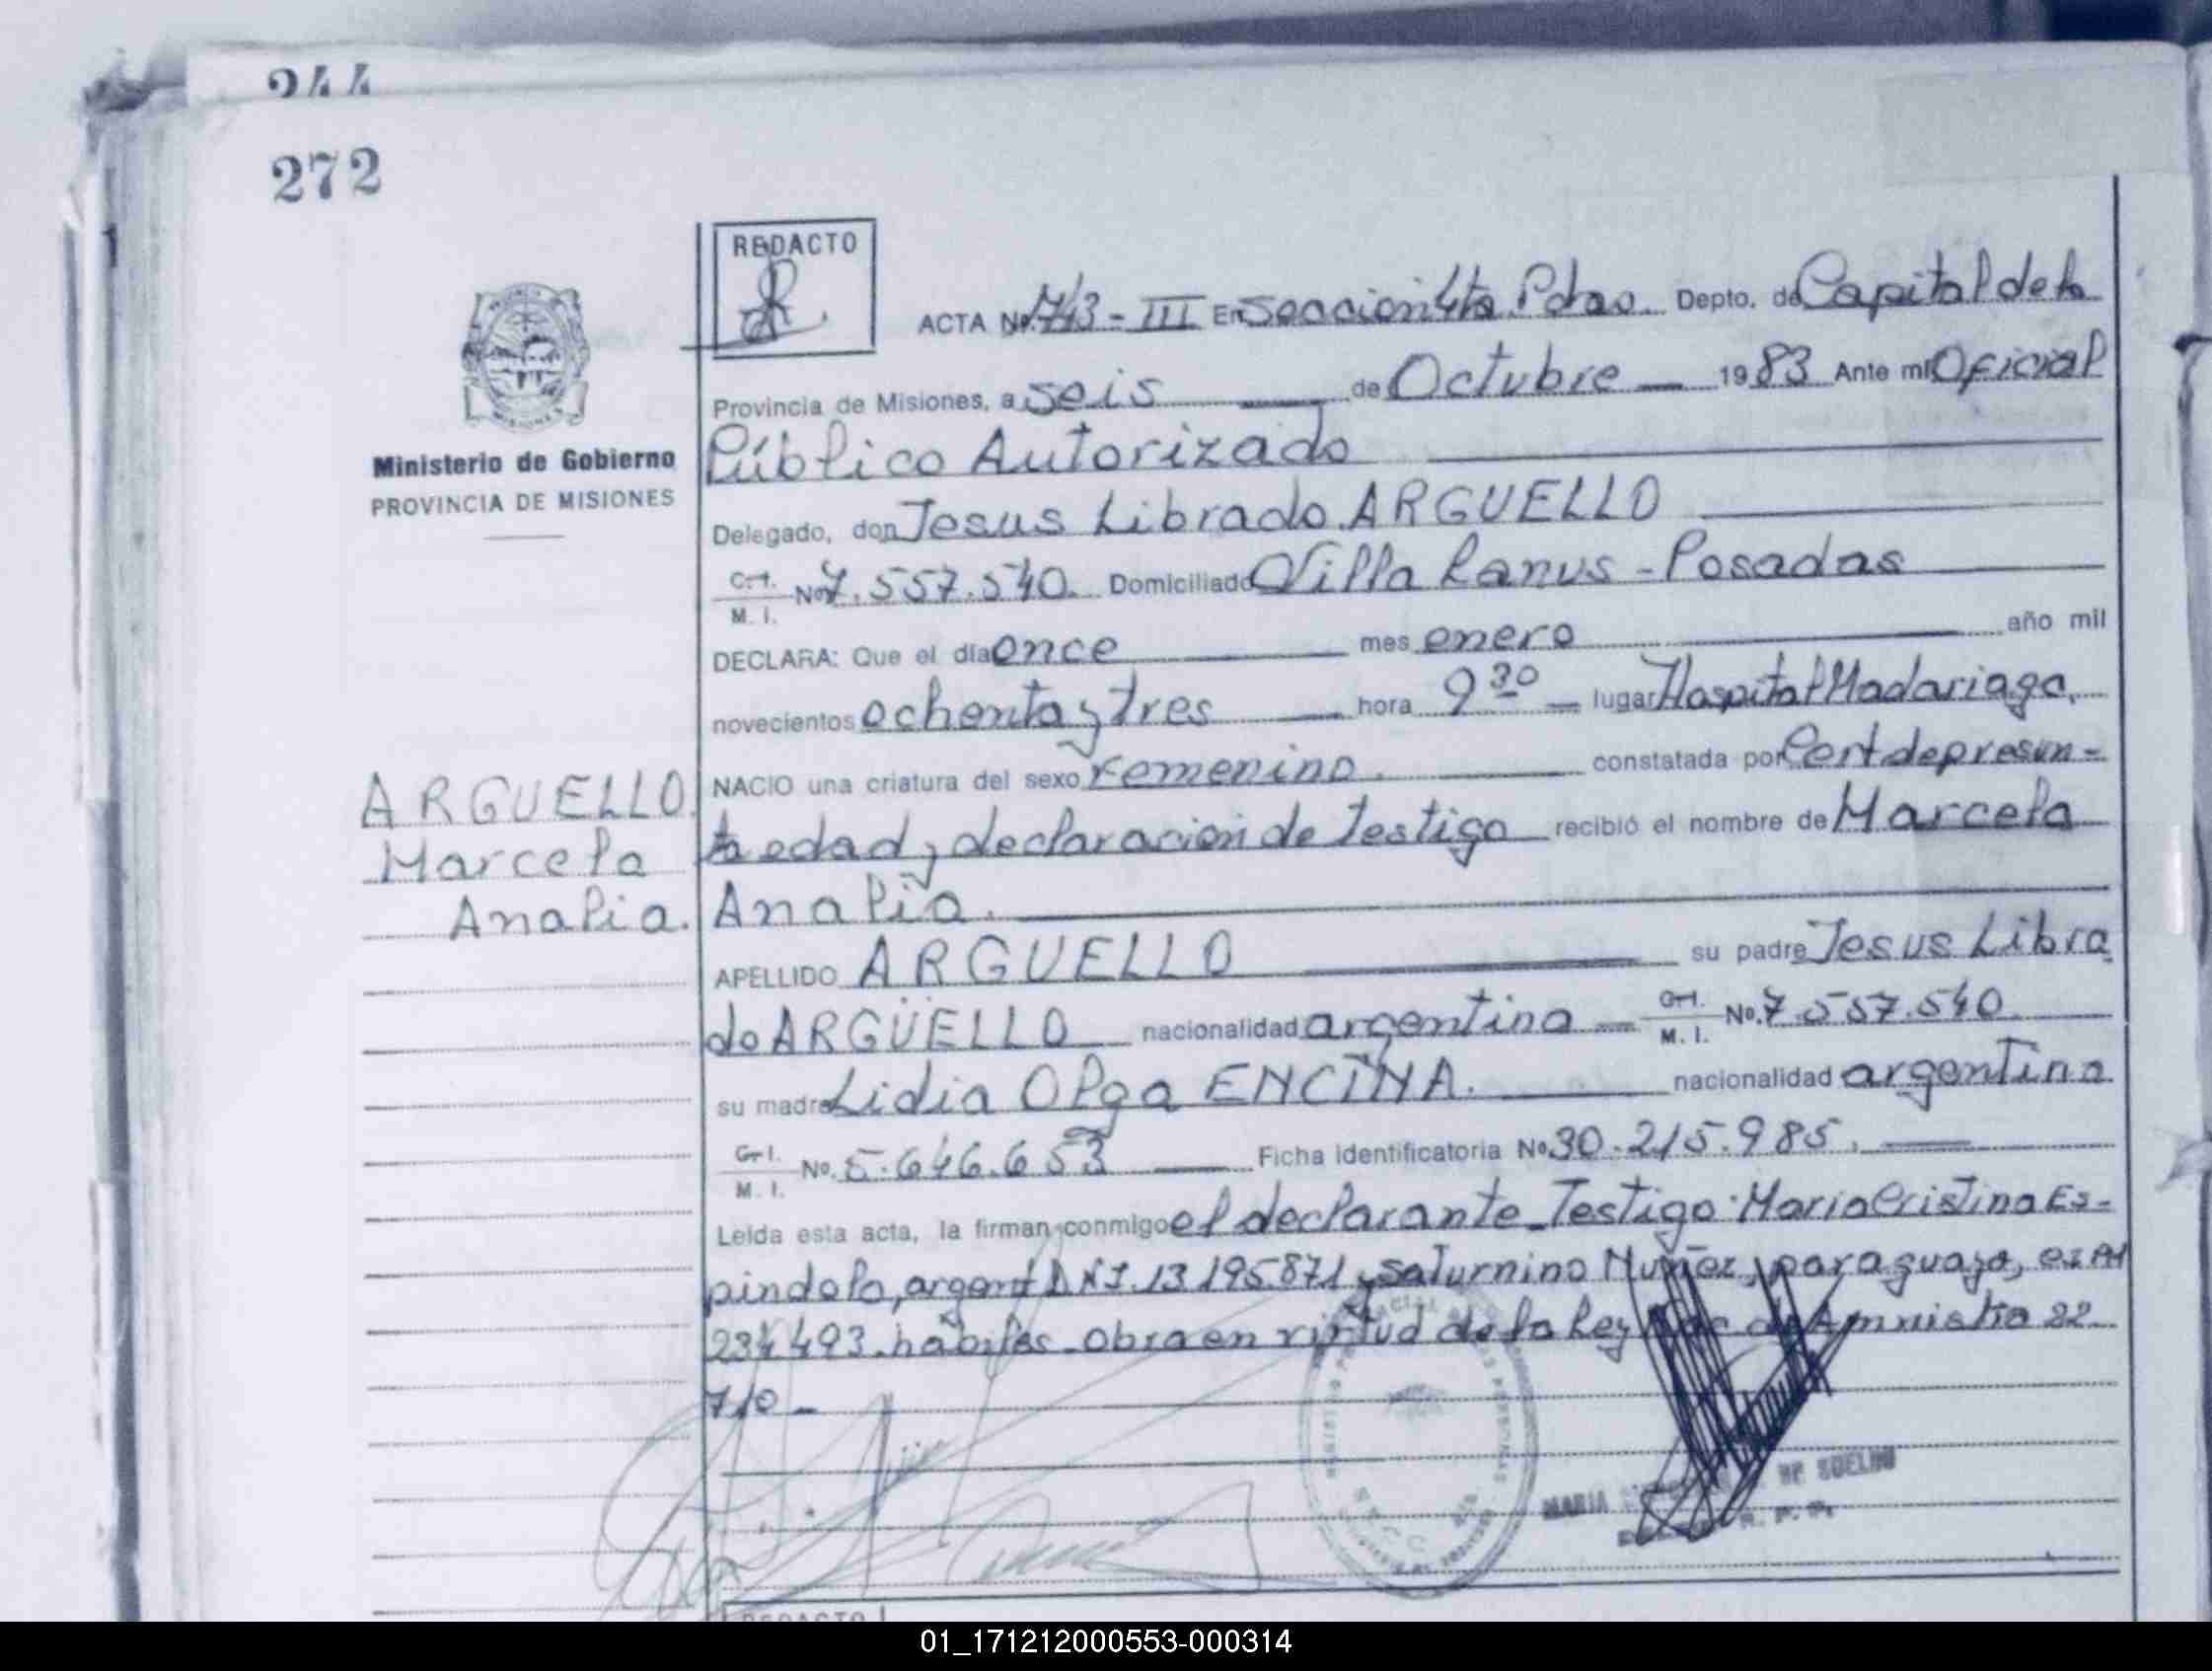 244
272
REDACTO
ACTA No. 743-III En Sección 4ta. Pdas. Depto. de Capital de la
Provincia de Misiones, a seis de Octubre 1983 Ante mí Oficial
Público Autorizado
Ministerio de Gobierno
PROVINCIA DE MISIONES
Delegado, don Jesus Librado ARGUELLO
C. I. M. I. No. 7.557.540. Domiciliado Villa Lanus - Posadas
DECLARA: Que el día once mes enero año mil
novecientos ochenta y tres hora 9 30 lugar Hospital Madariaga,
NACIO una criatura del sexo Femenino. constatada por Cert de presun-
ta edad y declaración de testigo recibió el nombre de Marcela
Analía.
ARGUELLO
Marcela
Analia.
APELLIDO ARGUELLO su padre Jesus Libra
do ARGÜELLO nacionalidad argentina C. I. M. I. No. 7.557.540
su madre Lidia Olga ENCINA. nacionalidad argentina
C. I. M. I. No. 5.646.653 Ficha identificatoria No. 30.215.985.
Leída esta acta, la firman conmigo el declarante Testigo: Maria Cristina Es-
pindola, argent D N I. 13 195.871 y Saturnino Muñoz, paraguayo,
234.493. hábiles. Obra en virtud de la Ley de Amnistia 22
710 -
MARIA DE COELHO
R. P. P.
REDACTO
01_171212000553-000314